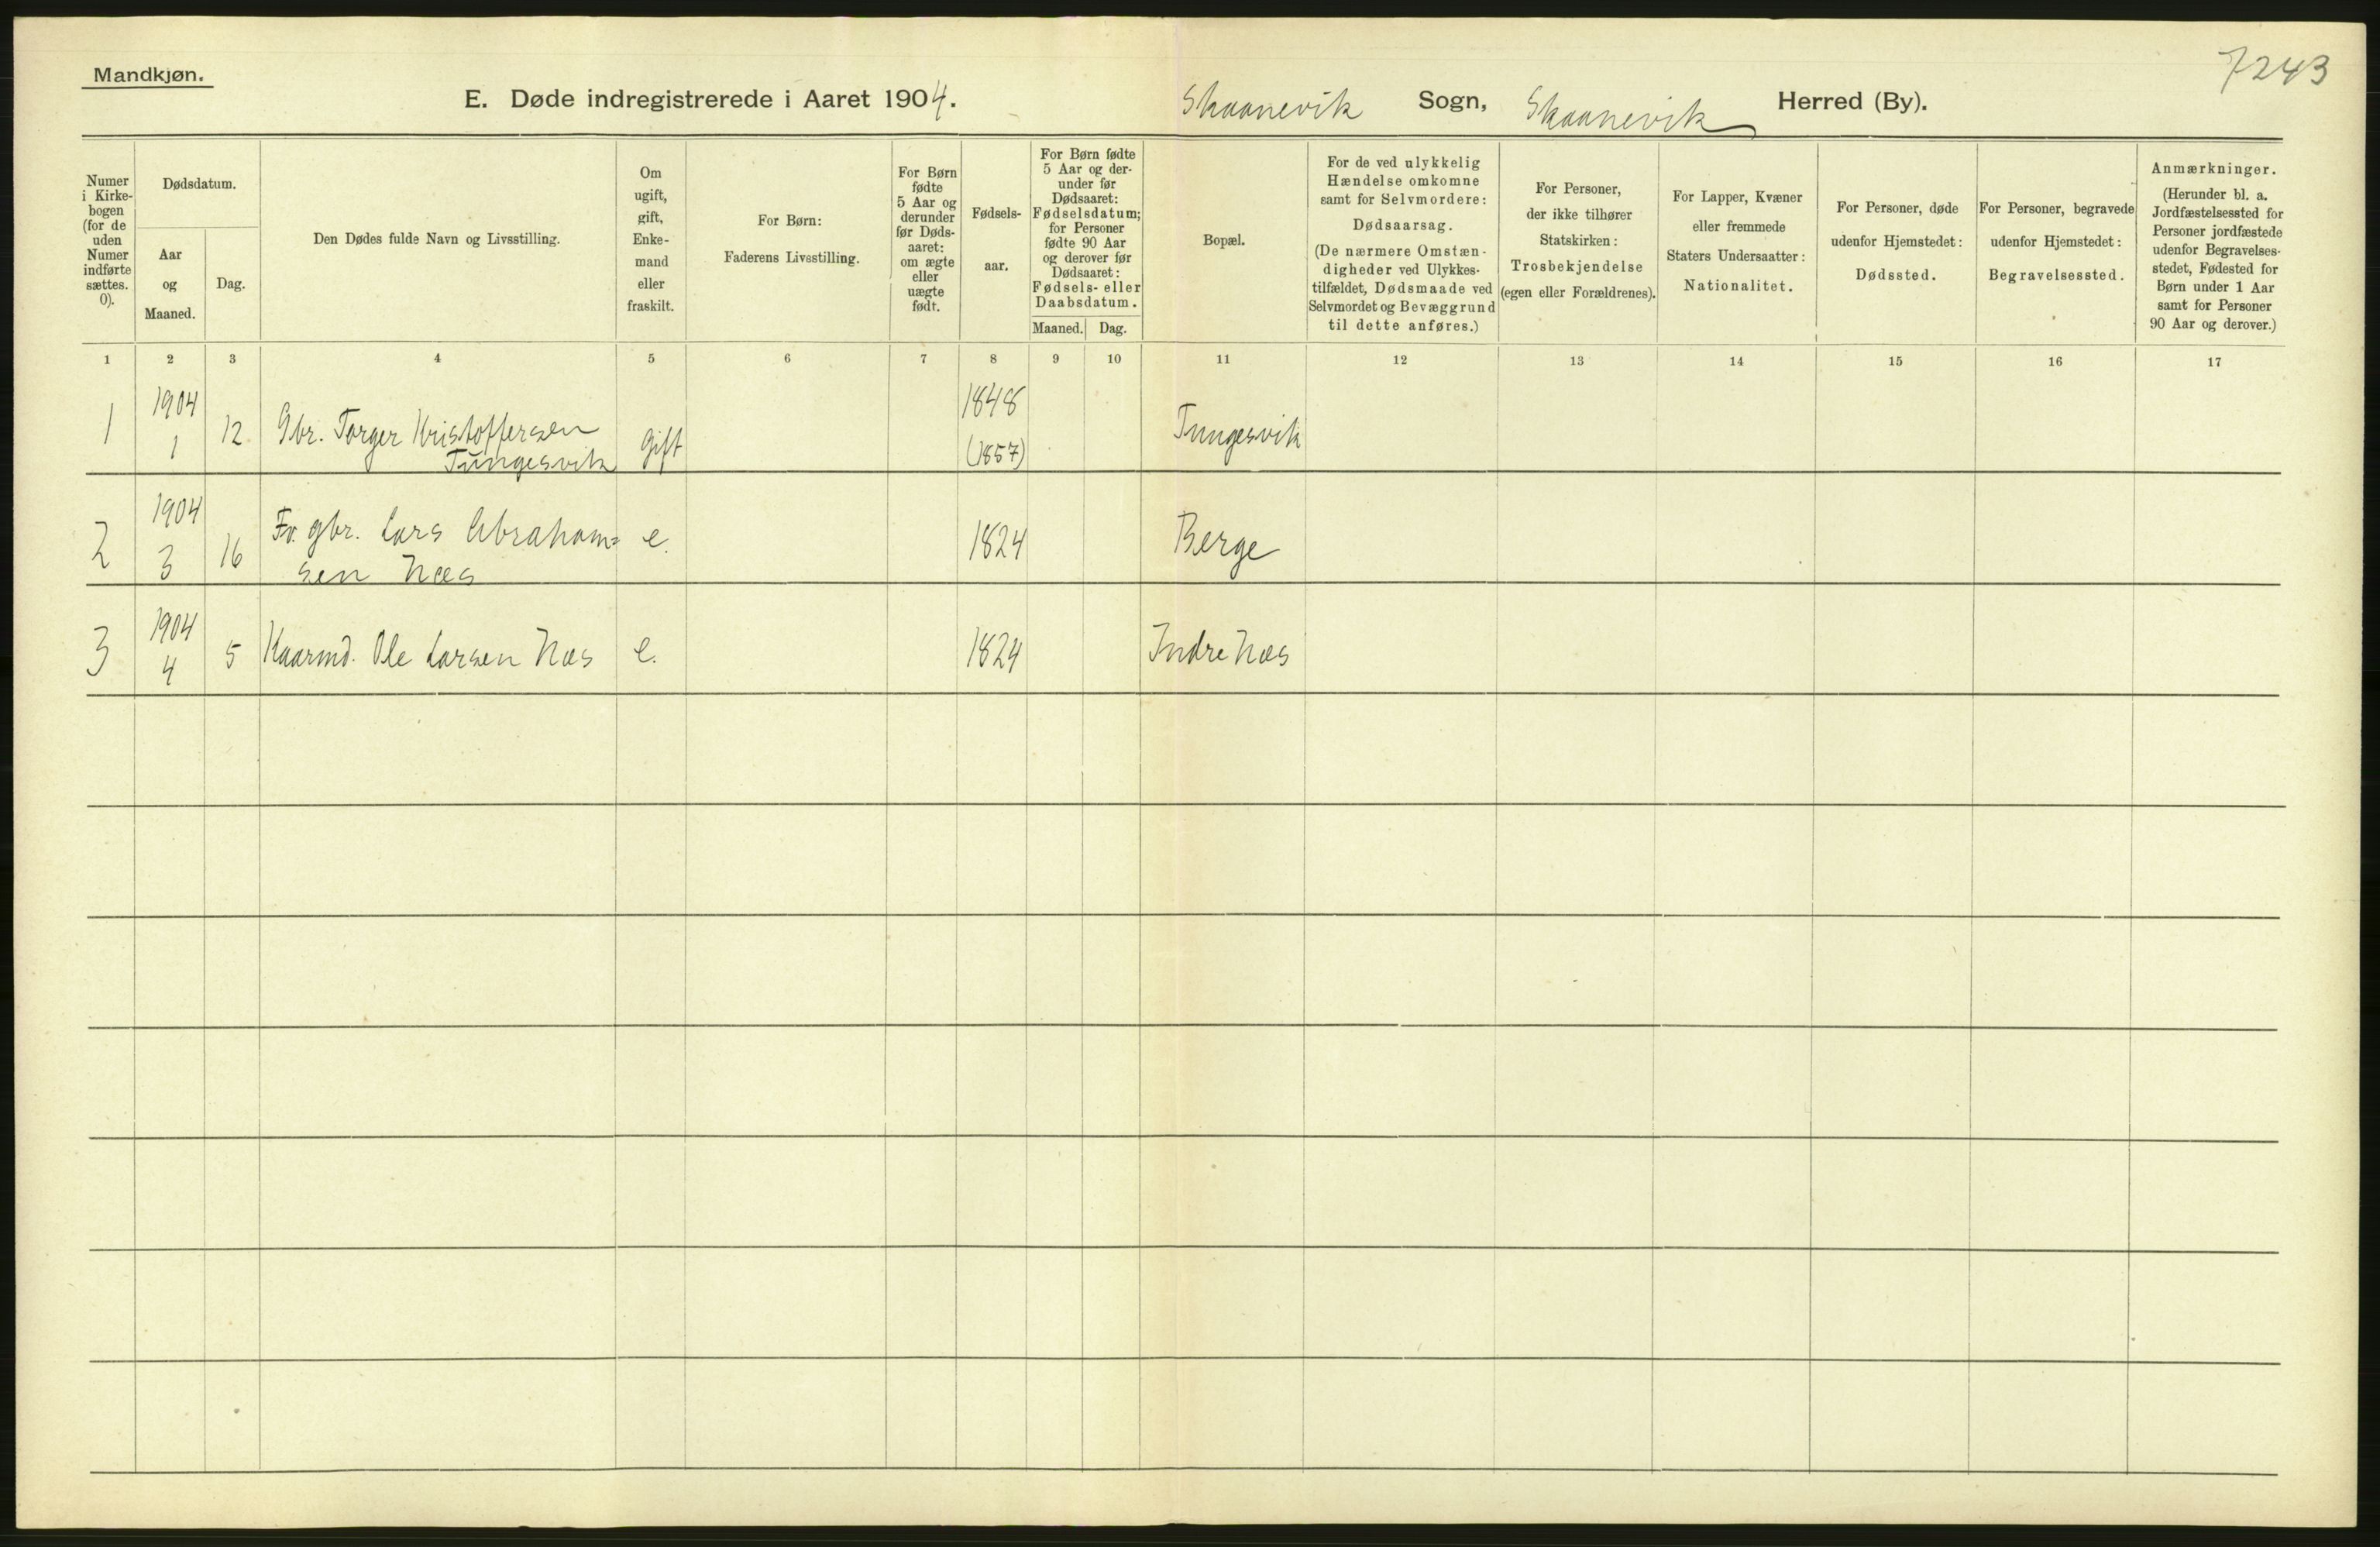 7243
Mandkjøn.
E. Døde indregistrerede i Aaret 1904.
Skaanevik Sogn, Skaanevik Herred (By).
Numer
i Kirke-
bogen
(for de
uden
Numer
indførte
sættes.
0).
Dødsdatum.
Aar
og
Maaned.
Dag.
Den Dødes fulde Navn og Livsstilling.
Om
ugift,
gift,
Enke-
mand
eller
fraskilt.
For Børn:
Faderens Livsstilling.
For Børn
fødte
5 Aar og
derunder
før Døds-
aaret:
om ægte
eller
uægte
født.
Fødsels-
aar.
For Børn fødte
5 Aar og der-
under før
Dødsaaret:
Fødselsdatum;
for Personer
fødte 90 Aar
og derover før
Dødsaaret:
Fødsels- eller
Daabsdatum.
Maaned. Dag.
Bopæl.
For de ved ulykkelig
Hændelse omkomne
samt for Selvmordere:
Dødsaarsag.
(De nærmere Omstæn-
digheder ved Ulykkes-
tilfældet, Dødsmaade ved
Selvmordet og Bevæggrund
til dette anføres.)
For Personer,
der ikke tilhører
Statskirken:
Trosbekjendelse
(egen eller Forældrenes).
For Lapper, Kvæner
eller fremmede
Staters Undersaatter:
Nationalitet.
For Personer, døde
udenfor Hjemstedet:
Dødssted.
For Personer, begravede
udenfor Hjemstedet:
Begravelsessted.
Anmærkninger.
(Herunder bl. a.
Jordfæstelsessted for
Personer jordfæstede
udenfor Begravelses-
stedet, Fødested for
Børn under 1 Aar
samt for Personer
90 Aar og derover.)
1 2 3 4 5 6 7 8 9 10 11 12 13 14 15 16 17
1904 1848
1 1 12 Gbr. Torger Kristoffersen gift Tungesvik
Tungesvik (1857)
1904
2 3 16 Fv. gbr. Lars Abraham= e. 1824 Berge
sen Næs
1904
3 4 5 Kaarmd. Ole Larsen Næs e. 1824 Indre Næs